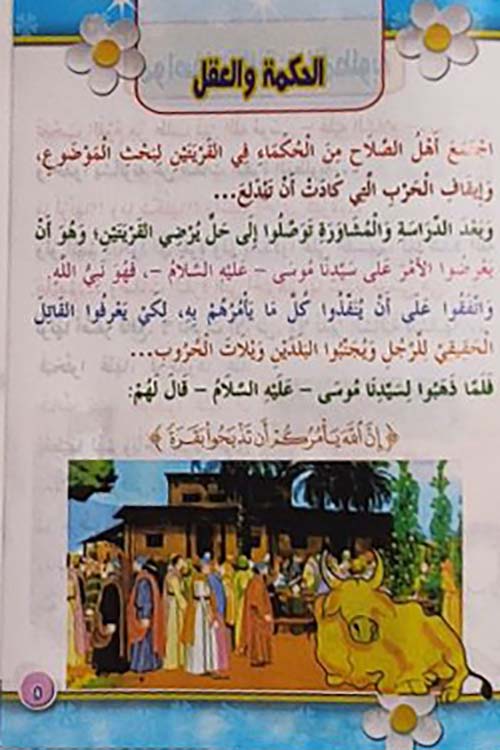 الحكمة والعقل
اجْتَمَعَ أَهْلُ الصَّلَاحِ مِنَ الْحُكَمَاءِ فِي الْقَرْيَتَيْنِ لِبَحْثِ الْمَوْضُوعِ،
وَإِيقَافِ الْحَرْبِ الَّتِي كَادَتْ أَنْ تَنْدَلِعَ...
وَبَعْدَ الدِّرَاسَةِ وَالْمُشَاوَرَةِ تَوَصَّلُوا إِلَى حَلٍّ يُرْضِي الْقَرْيَتَيْنِ؛ وَهُوَ أَنْ
يَعْرِضُوا الْأَمْرَ عَلَى سَيِّدِنَا مُوسَى - عَلَيْهِ السَّلَامُ -، فَهُوَ نَبِيُّ اللَّهِ.
وَاتَّفَقُوا عَلَى أَنْ يُنَفِّذُوا كُلَّ مَا يَأْمُرُهُمْ بِهِ، لِكَيْ يَعْرِفُوا الْقَاتِلَ
الْحَقِيقِيَّ لِلرَّجُلِ وَيُجَنِّبُوا الْبَلَدَيْنِ وَيْلَاتِ الْحُرُوبِ...
فَلَمَّا ذَهَبُوا لِسَيِّدِنَا مُوسَى - عَلَيْهِ السَّلَامُ - قَالَ لَهُمْ:
﴿إِنَّ اللَّهَ يَأْمُرُكُمْ أَنْ تَذْبَحُوا بَقَرَةً﴾
٥